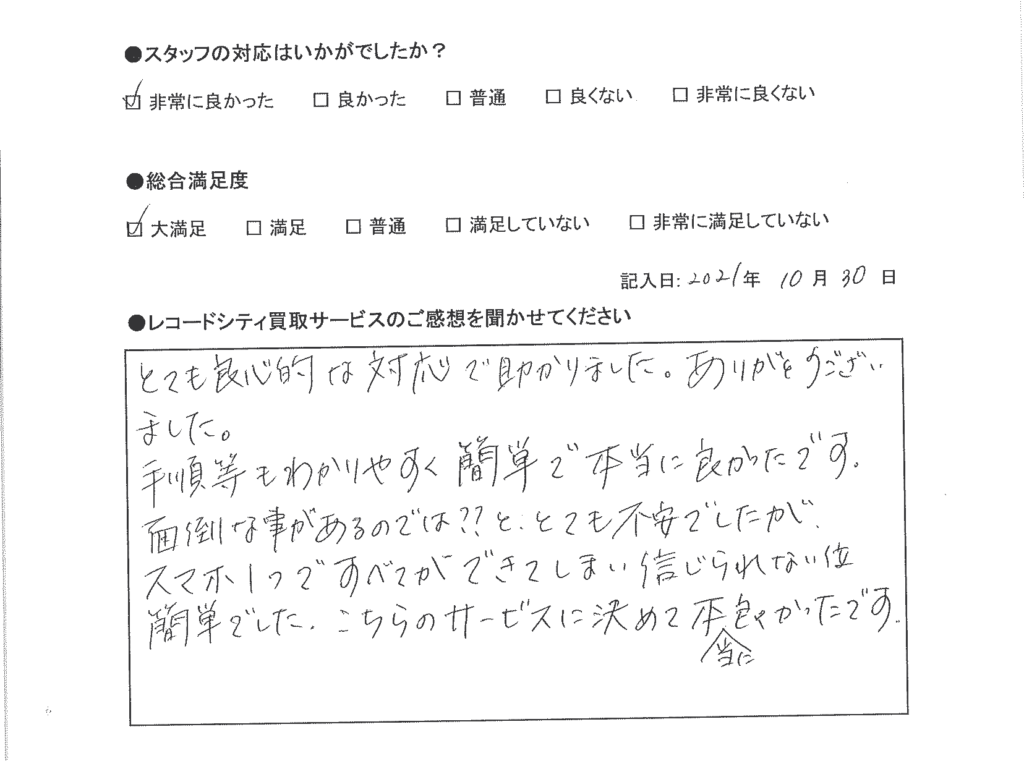 ●スタッフの対応はいかがでしたか？
☑ 非常に良かった　□ 良かった　□ 普通　□ 良くない　□ 非常に良くない
●総合満足度
☑ 大満足　□ 満足　□ 普通　□ 満足していない　□ 非常に満足していない
記入日: 2021年 10月 30日
●レコードシティ買取サービスのご感想を聞かせてください
とても良心的な対応で助かりました。ありがとうござい
ました。
手順等もわかりやすく簡単で本当に良かったです。
面倒な事があるのでは??と、とても不安でしたが、
スマホ1つですべてができてしまい信じられない位
簡単でした。こちらのサービスに決めて本当に良かったです。